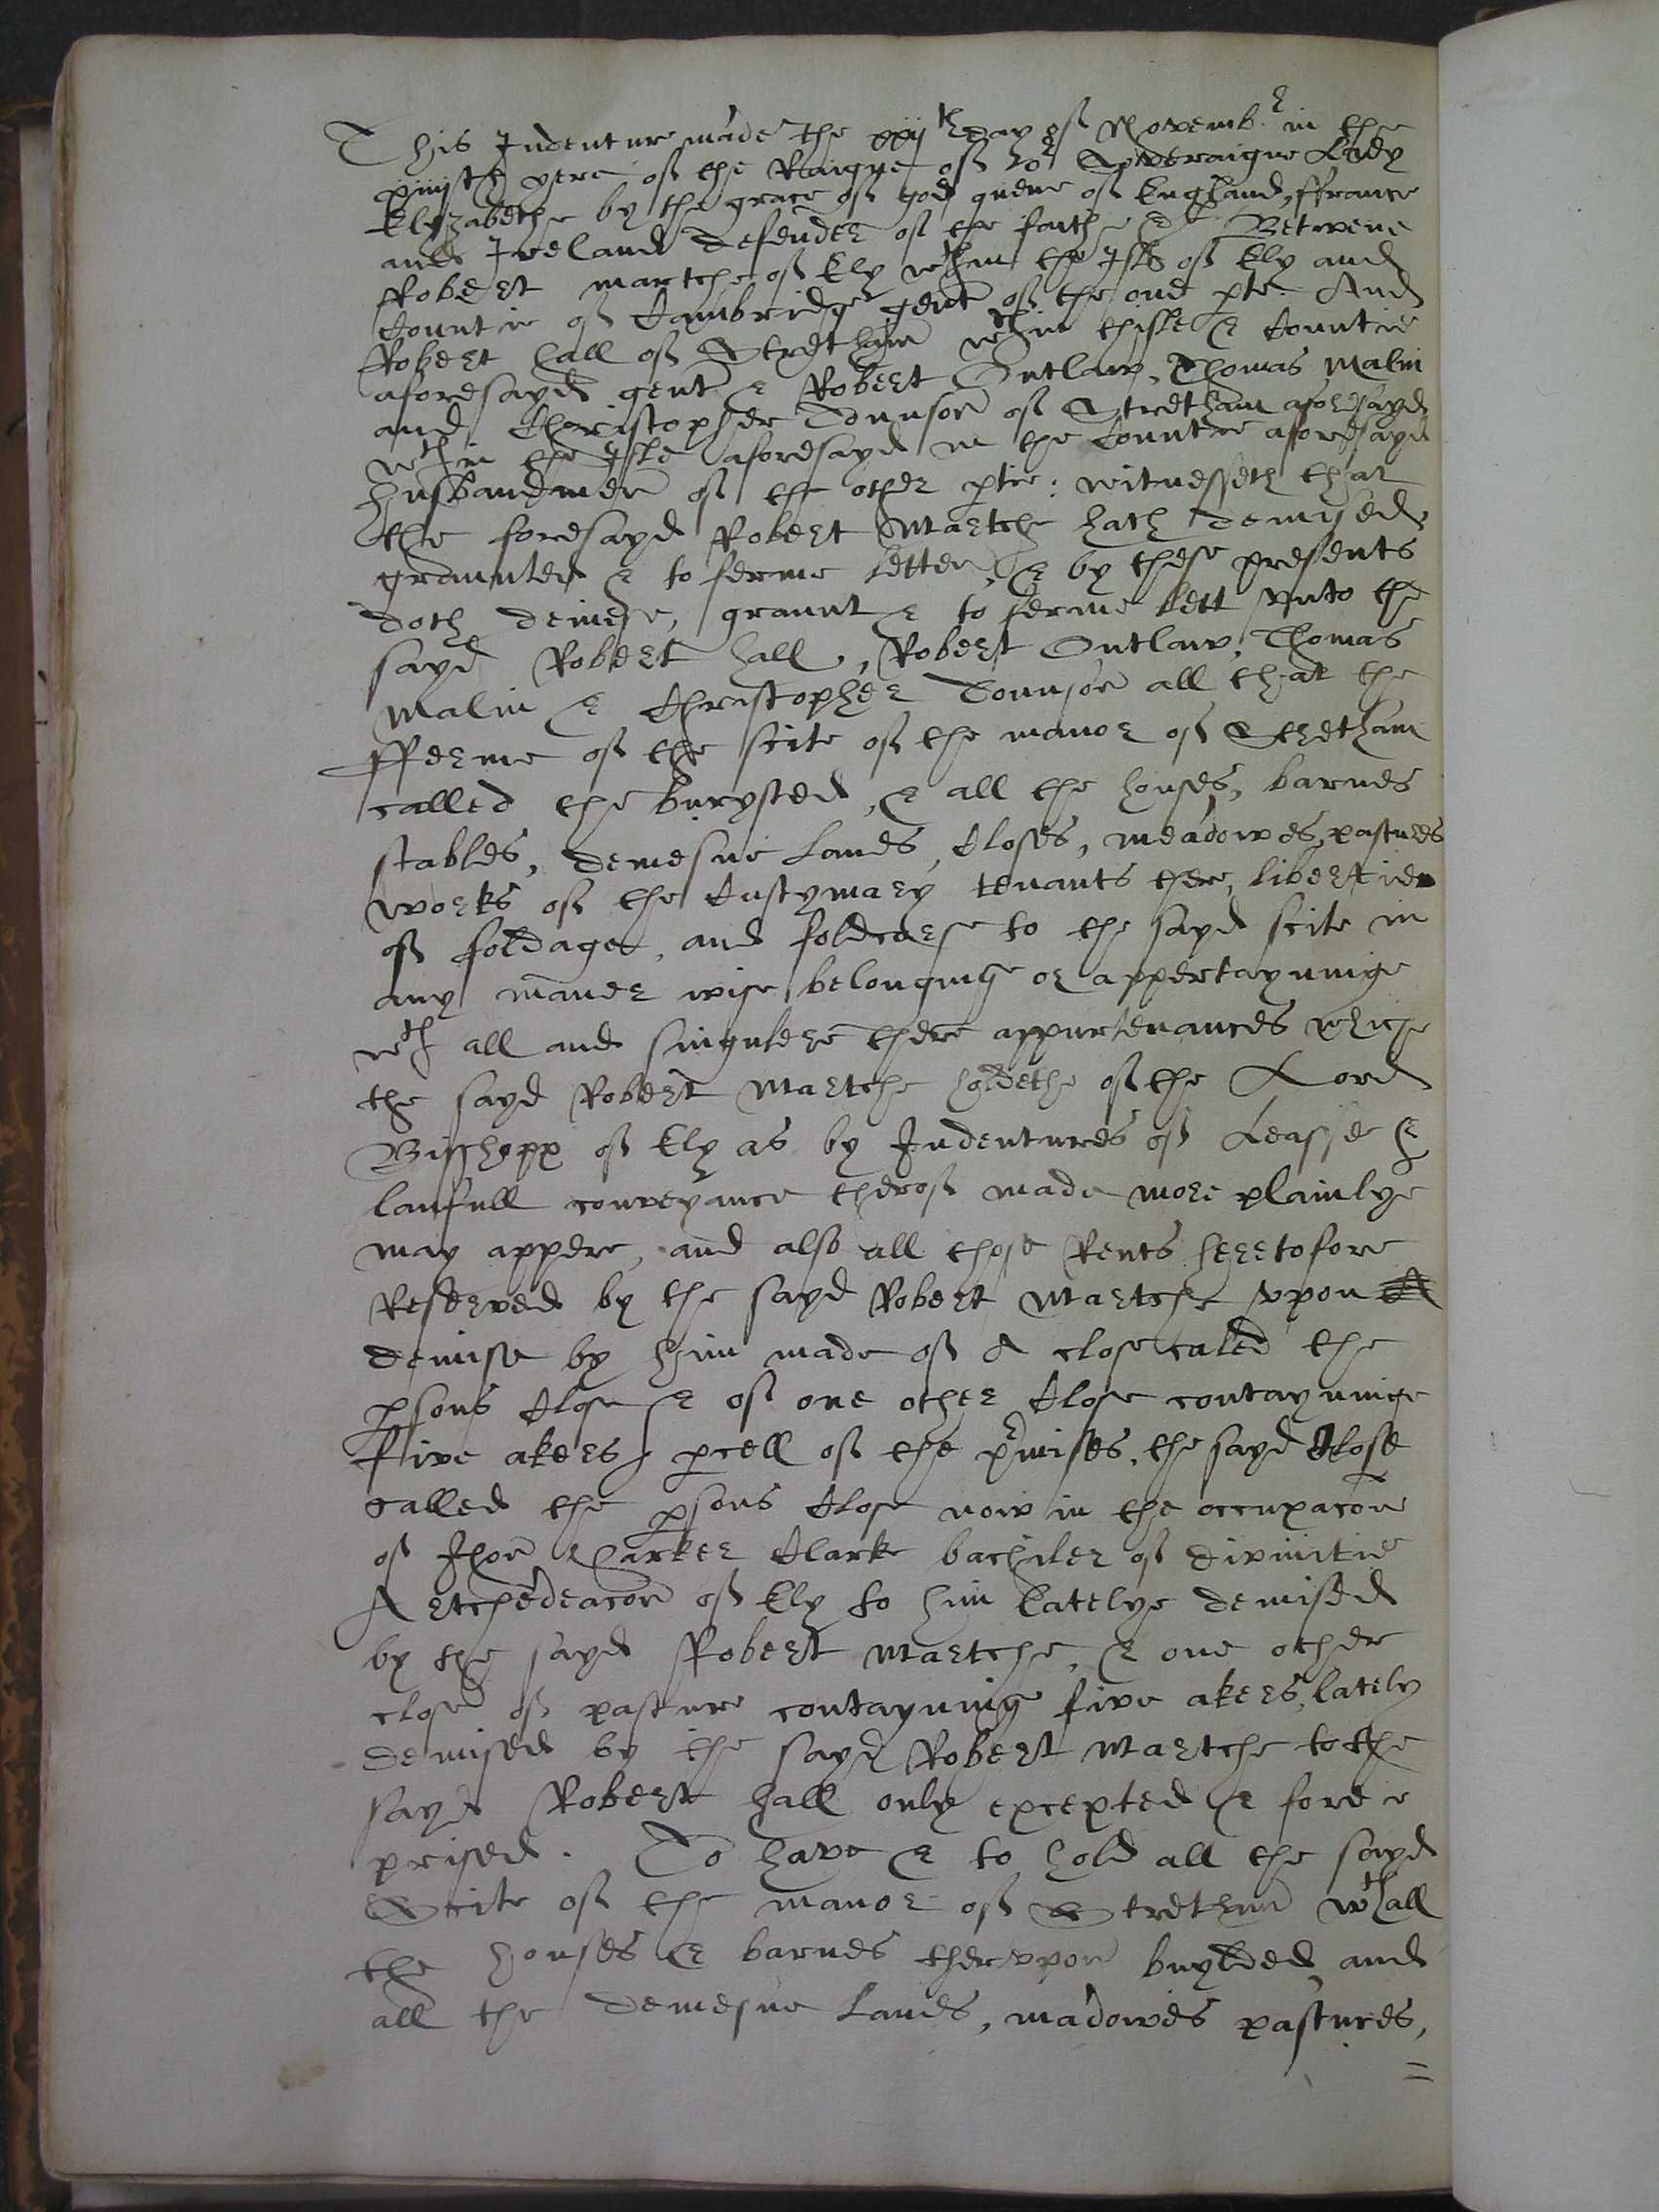 This Indenture made the xxij th day of Novemb^r in the
xiiijth yere of the Raigne of ow^r Soveraigne Lady
Elyzabethe by the grace of god quene of England, ffrance
and Ireland defender of the faith &c Betwene
Robert Martche of Ely w^thin the Isle of Ely and
Countie of Cambridge gent of the one pte And
Robert Hall of Stretham w^thin thisle & Countie
aforesayd gent & Robert Outlaw, Thomas Malin
and Christopher Tounson of Stretham aforesayd
w^thin the Isle aforesayd in the Countie aforesayd
husbandmen of the other ptie: witnesseth that
the foresayd Robert Martche hath demysed,
graunted & to ferme letten, & by these presents
doth demese, graunt & to ferme lett unto the
sayd Robert Hall, Robert Outlaw, Thomas
Malin & Christopher Tounson all that the
fferme of the scite of the manor of Stretham
called the burysted, & all the houses, barnes
stables, demesne Lands, Closes, meadowes, pastures
works of the Custymary tenants there, liberties
of foldage, and foldcorse to the sayd scite in
any maner wise belonging or appertayninge
w^th all and singulere there appurtenances which
the sayd Robert Martche holdethe of the Lord
Bisshopp of Ely as by Indentures of Leasse &
lanfull conveyance therof made more plainlye
may appere, and also all those Rents heretofore
Reserved by the sayd Robert Martche upon
demise by him made of A close caled the
psons Close & of one other Close contayninge
five akers pcell of the p^rmises, the sayd Close
called the psons Close now in the occupacon
of Jhon Parker Clarke bachiler of divinitie
Artchedeacon of Ely to him latelye demised
by the sayd Robert Martche, & one other
close of pasture contayninge five akers, lately
demised by the sayd Robert Martche to the
sayd Robert Hall only excepted & fore =
prised. To have & to hold all the sayd
Scite of the manor of Stretham w^th all
the houses & barnes therupon buylded, and
all the demesne Lands, madowes pastures,
=